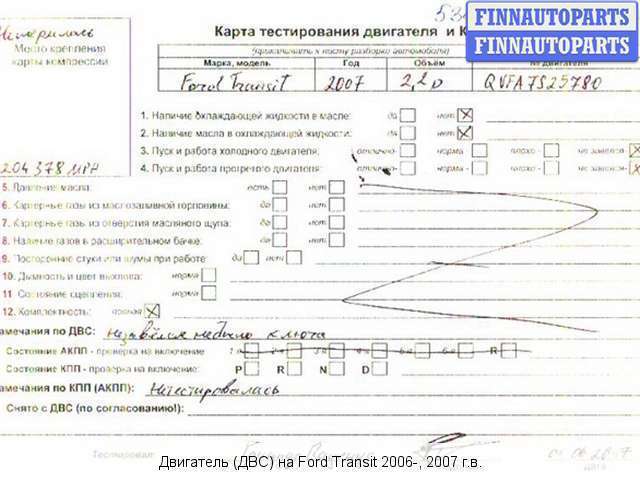 FINNAUTOPARTS
FINNAUTOPARTS
Место крепления
карты компрессии
204378 MPH
Карта тестирования двигателя и К
(прикалывать к посту разборки автомобиля)
Марка, модель Год Объём № двигателя
Ford Transit 2007 2,2 D QVFA7S25780
1. Наличие охлаждающей жидкости в масле: да нет
2. Наличие масла в охлаждающей жидкости: да нет
3. Пуск и работа холодного двигателя: отлично- норма- плохо- не завелся-
4. Пуск и работа прогретого двигателя: отлично- норма- плохо- не завелся-
5. Давление масла: есть нет
6. Картерные газы из маслозаливной горловины: да нет
7. Картерные газы из отверстия масляного щупа: да нет
8. Наличие газов в расширительном бачке: да нет
9. Посторонние стуки или шумы при работе: да нет
10. Дымность и цвет выхлопа: норма
11 Состояние сцепления: норма
12. Комплектность: полная
амечания по ДВС: не завёлся не было ключа
Состояние АКПП - проверка на включение 1-я 2-я 3-я 4-я 5-я 6-я R
Состояние КПП - проверка на включение: P R N D
амечания по КПП (АКПП): Не тестировалась
Снято с ДВС (по согласованию!):
Тестировал:
Дата
Двигатель (ДВС) на Ford Transit 2006-, 2007 г.в.